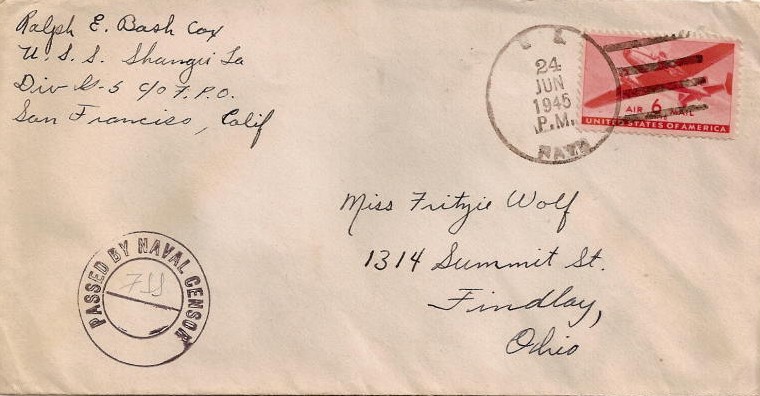 Ralph E. Bash Cox
U. S. S. Shangri La
Div G-5 c/o F.P.O.
San Franciso, Calif
24
JUN
1945
P.M.
NAVY
AIR 6¢ MAIL
UNITED STATES OF AMERICA
Miss Fritzie Wolf
1314 Summit St.
Findlay,
Ohio
PASSED BY NAVAL CENSOR